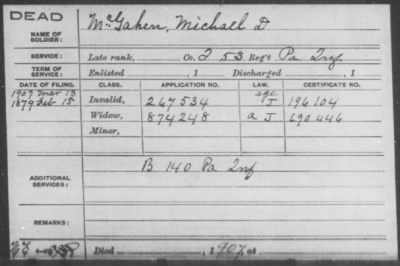 DEAD
NAME OF SOLDIER: McGahen, Michael D
SERVICE: Late rank, Co. I 53 Reg't Pa Inf
TERM OF SERVICE: Enlisted , 1 Discharged , 1
DATE OF FILING. CLASS. APPLICATION NO. LAW. CERTIFICATE NO.
1907 Mar 13
1879 Feb 15 Invalid, 267534 J 196104
Widow, 874248 a J 690446
Minor,
ADDITIONAL SERVICES: B 140 Pa Inf
REMARKS:
Died , 1907, at